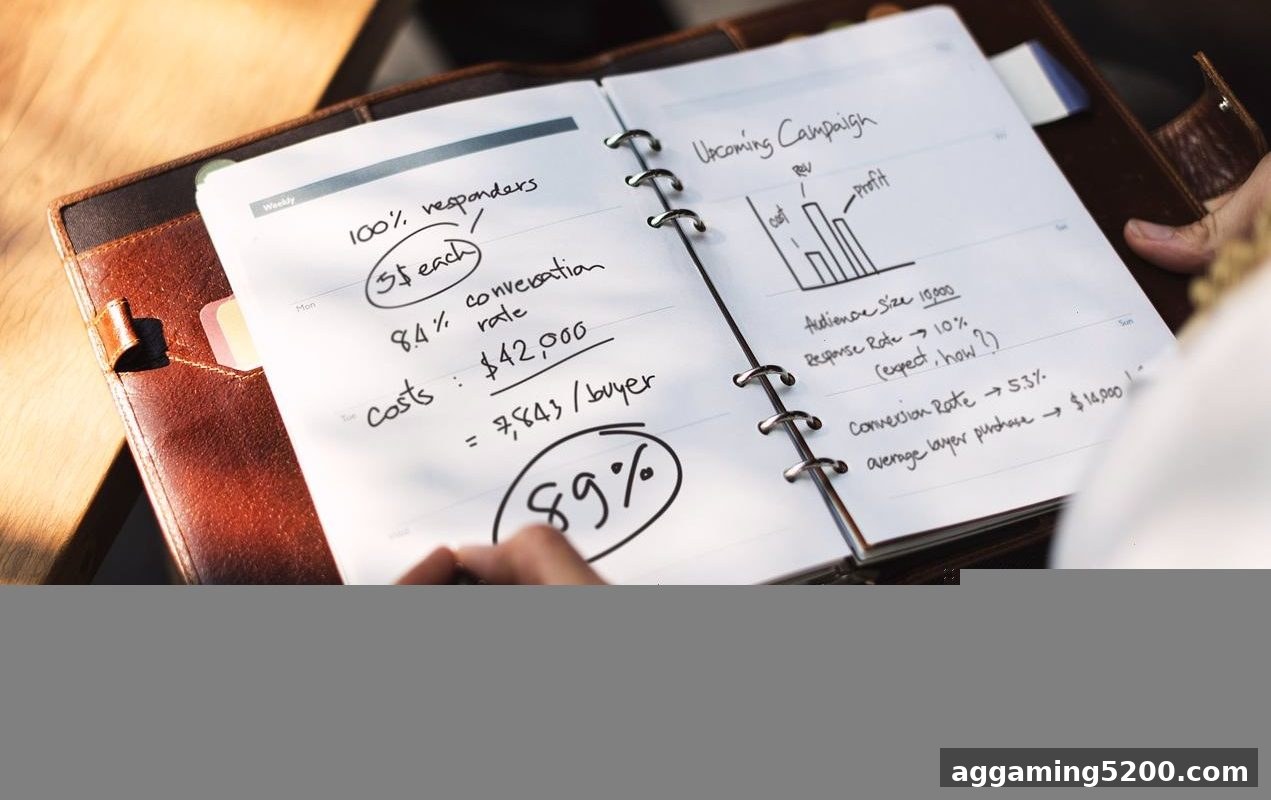 Weekly
100% responders
5$ each
8.4% conversation
rate
costs : $42,000
= 7,843 / buyer
89%
Mon
Tue
Wed
Upcoming Campaign
Rev
cost
Profit
Audience Size 10,000
Response Rate → 10%
(expect, how?)
Conversion Rate → 5.3%
average buyer purchase → $14,000
Sun
aggaming5200.com